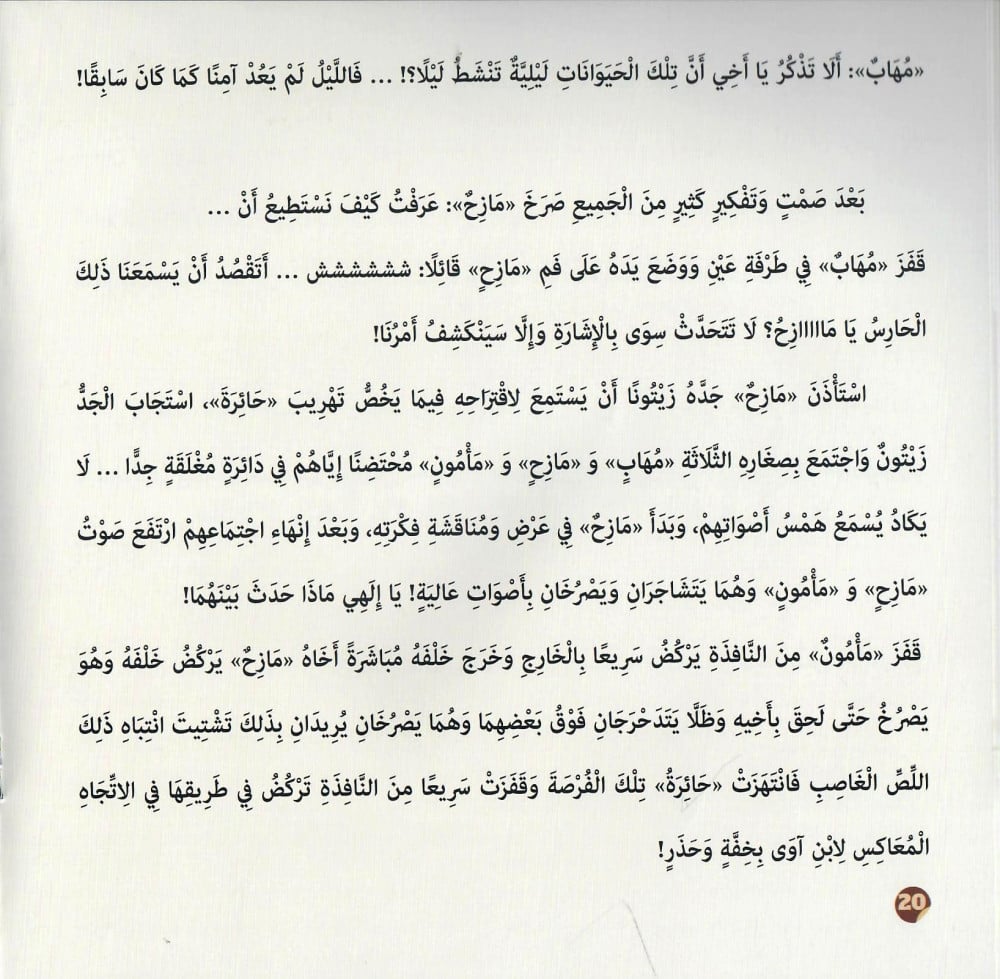 «مُهَابٌ»: أَلَا تَذْكُرُ يَا أَخِي أَنَّ تِلْكَ الْحَيَوَانَاتِ لَيْلِيَّةٌ تَنْشَطُ لَيْلًا؟! ... فَاللَّيْلُ لَمْ يَعُدْ آمِنًا كَمَا كَانَ سَابِقًا!
بَعْدَ صَمْتٍ وَتَفْكِيرٍ كَثِيرٍ مِنَ الْجَمِيعِ صَرَخَ «مَازِحٌ»: عَرَفْتُ كَيْفَ نَسْتَطِيعُ أَنْ ...
قَفَزَ «مُهَابٌ» فِي طَرْفَةِ عَيْنٍ وَوَضَعَ يَدَهُ عَلَى فَمِ «مَازِحٍ» قَائِلًا: شششششش ... أَتَقْصُدُ أَنْ يَسْمَعَنَا ذَلِكَ
الْحَارِسُ يَا مَاااازِحُ؟ لَا تَتَحَدَّثْ سِوَى بِالْإِشَارَةِ وَإِلَّا سَيَنْكَشِفُ أَمْرُنَا!
اسْتَأْذَنَ «مَازِحٌ» جَدَّهُ زَيْتُونًا أَنْ يَسْتَمِعَ لِاقْتِرَاحِهِ فِيمَا يَخُصُّ تَهْرِيبَ «حَائِرَةَ»، اسْتَجَابَ الْجَدُّ
زَيْتُونٌ وَاجْتَمَعَ بِصِغَارِهِ الثَّلَاثَةِ «مُهَابٍ» وَ «مَازِحٍ» وَ «مَأْمُونٍ» مُحْتَضِنًا إِيَّاهُمْ فِي دَائِرَةٍ مُغْلَقَةٍ جِدًّا ... لَا
يَكَادُ يُسْمَعُ هَمْسُ أَصْوَاتِهِمْ، وَبَدَأَ «مَازِحٌ» فِي عَرْضِ وَمُنَاقَشَةِ فِكْرَتِهِ، وَبَعْدَ إِنْهَاءِ اجْتِمَاعِهِمْ ارْتَفَعَ صَوْتُ
«مَازِحٍ» وَ «مَأْمُونٍ» وَهُمَا يَتَشَاجَرَانِ وَيَصْرُخَانِ بِأَصْوَاتٍ عَالِيَةٍ! يَا إِلَهِي مَاذَا حَدَثَ بَيْنَهُمَا!
قَفَزَ «مَأْمُونٌ» مِنَ النَّافِذَةِ يَرْكُضُ سَرِيعًا بِالْخَارِجِ وَخَرَجَ خَلْفَهُ مُبَاشَرَةً أَخَاهُ «مَازِحٌ» يَرْكُضُ خَلْفَهُ وَهُوَ
يَصْرُخُ حَتَّى لَحِقَ بِأَخِيهِ وَظَلَّا يَتَدَحْرَجَانِ فَوْقُ بَعْضِهِمَا وَهُمَا يَصْرُخَانِ يُرِيدَانِ بِذَلِكَ تَشْتِيتَ انْتِبَاهِ ذَلِكَ
اللِّصِّ الْغَاصِبِ فَانْتَهَزَتْ «حَائِرَةُ» تِلْكَ الْفُرْصَةَ وَقَفَزَتْ سَرِيعًا مِنَ النَّافِذَةِ تَرْكُضُ فِي طَرِيقِهَا فِي الِاتِّجَاهِ
الْمُعَاكِسِ لِابْنِ آوَى بِخِفَّةٍ وَحَذَرٍ!
20